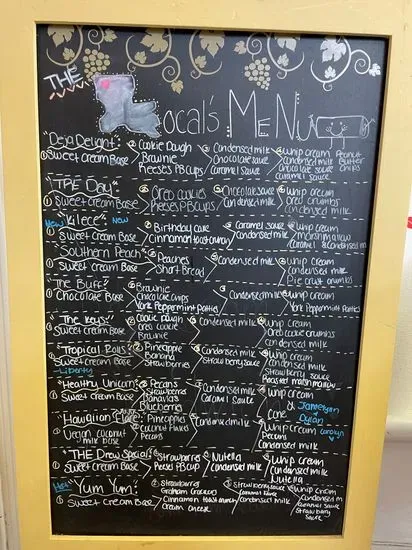 THE Local's MENU
"Deja Delight:"
① Sweet Cream Base
② Cookie Dough
Brownie
Reese's PB Cups
③ Condensed milk
Chocolate sauce
Caramel Sauce
④ Whip cream
Condensed milk
Chocolate sauce
Caramel sauce
Peanut
Butter
Chips
"THE Day"
① Sweet Cream Base
② Oreo cookies
Reese's PB Cups
③ Chocolate sauce
Condensed milk
④ Whip cream
Oreo crumbs
Condensed milk
New
New
① Sweet Cream Base
② Birthday Cake
Cinnamon toast crunch
③ Caramel Sauce
Condensed milk
④ Whip cream
marshmallow
Caramel & Condensed m
"Southern Peach"
① Sweet Cream Base
② Peaches
Short Bread
③ Condensed milk
④ Whip cream
condensed milk
Pie crust crumbs
"The Buff:"
① Chocolate Base
② Brownie
Chocolate Chips
York Peppermint Patties
③ Condensed milk
④ Whip cream
York Peppermint Patties
"The Keys:"
① Sweet Cream Base
② Cookie Dough
Oreo cookie
Brownie
③ Condensed milk
④ Whip cream
Oreo cookie crumbs
condensed milk
"Tropical Rolls:"
① Sweet Cream Base
Liberty
② Pineapple
Banana
Strawberries
③ Condensed milk
Strawberry sauce
④ Whip cream
condensed milk
Strawberry sauce
Roasted marshmallow
"Healthy Unicorn:"
① Sweet Cream Base
② Pecans
Strawberries
Bananas
Blueberries
③ Condensed milk
Caramel Sauce
④ Whip cream
&
Cone
Dylan
"Hawaiian
① Vegan coconut
milk Base
② Pineapples
Coconut Flakes
Pecans
③ Condensed milk
④ Whip Cream
Pecans
Condensed milk
Carolyn
"THE Drew Special:"
① Sweet Cream Base
② Strawberries
Reese PB Cup
③ Nutella
Condensed milk
④ Whip cream
condensed milk
Nutella
New
"Yum Yum:"
① Sweet Cream Base
② Strawberries
Graham Crackers
Cinnamon toast crunch
Cream cheese
③ Strawberry sauce
Caramel sauce
Condensed milk
④ Whip cream
Condensed m
Caramel sauce
Strawberry
Sauce